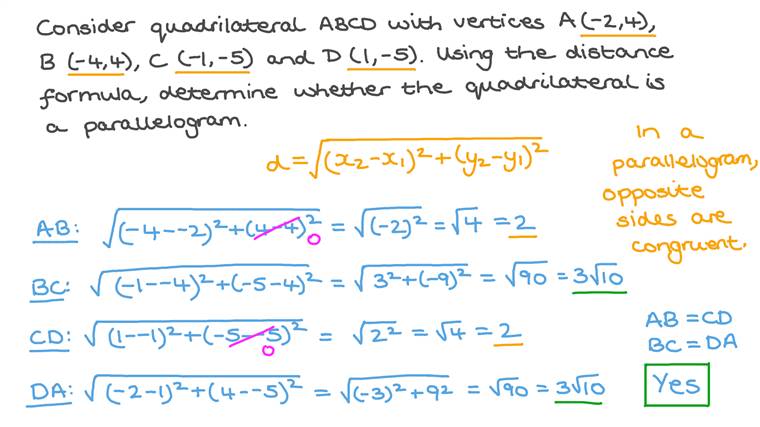 Consider quadrilateral ABCD with vertices A(-2,4),
B (-4,4), C (-1,-5) and D (1,-5). Using the distance
formula, determine whether the quadrilateral is
a parallelogram.
d = √((x₂-x₁)²+(y₂-y₁)²)
In a
parallelogram,
opposite
sides are
congruent.
AB: √((-4--2)²+(4-4)²) = √((-2)²) = √4 = 2
0
BC: √((-1--4)²+(-5-4)²) = √(3²+(-9)²) = √90 = 3√10
CD: √((1--1)²+(-5--5)²) = √(2²) = √4 = 2
0
DA: √((-2-1)²+(4--5)²) = √((-3)²+9²) = √90 = 3√10
AB = CD
BC = DA
Yes